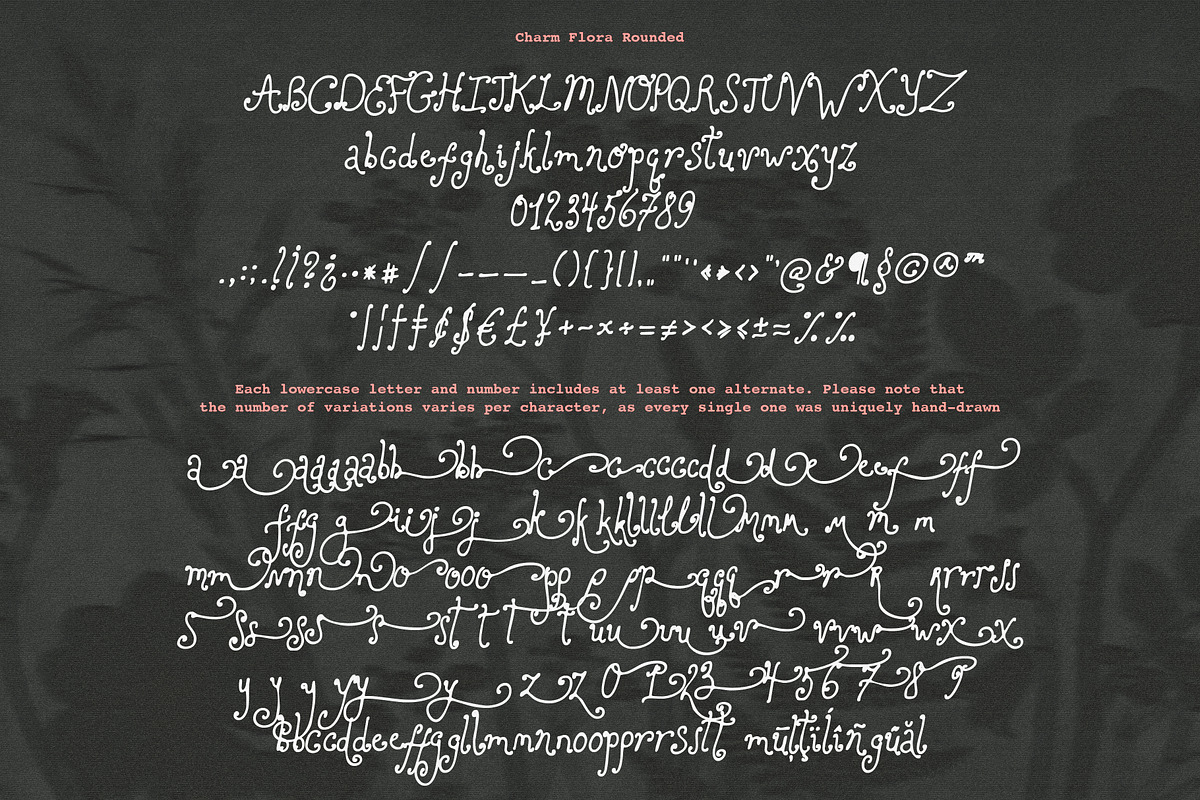 Charm Flora Rounded
ABCDEFGHIJKLMNOPQRSTUVWXYZ
abcdefghijklmnopqrstuvwxyz
0123456789
.,:;.!¡?¿··*#/ / -–—_(){}[]‚„“”‘’«»‹›"'@&¶§©®™
°|¦†‡¢$€£¥+−×÷=≠><≥≤±≈%‰
Each lowercase letter and number includes at least one alternate. Please note that
the number of variations varies per character, as every single one was uniquely hand-drawn
a a aaqaabb bb c c ccccdd d e eef ff
ffg g iijj j k k kkllllllll mmm m m m
mm nnn n o ooo pp p pp qqq r r R rrrss
s ss ss s st t t t uu uu u v vvw wx x
y y y yy y z z 0 1 2 3 4 5 6 7 8 9
bbccddeeffggllmmnnooppssrrsstt mūļţïlîñgūăl